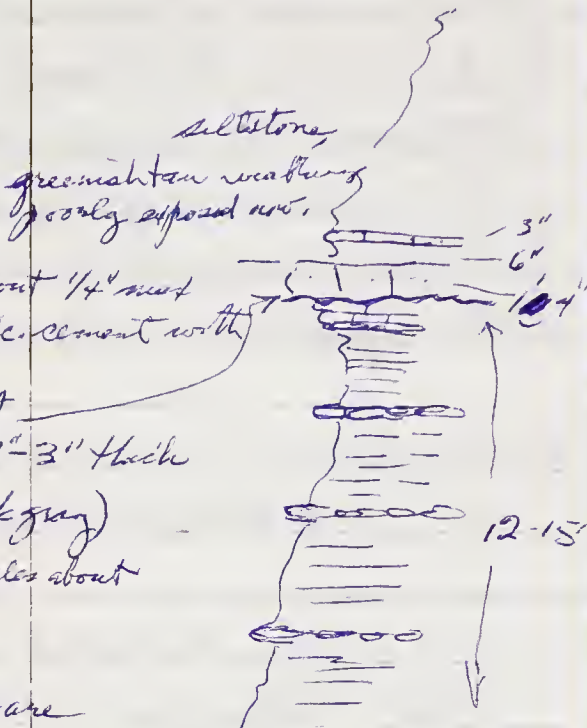 siltstone,
greenish tan weathering
poorly exposed now.
3"
6"
4"
out 1/4" 
c. cement with
2"-3" thick
k gray)
les about
12-15'
are